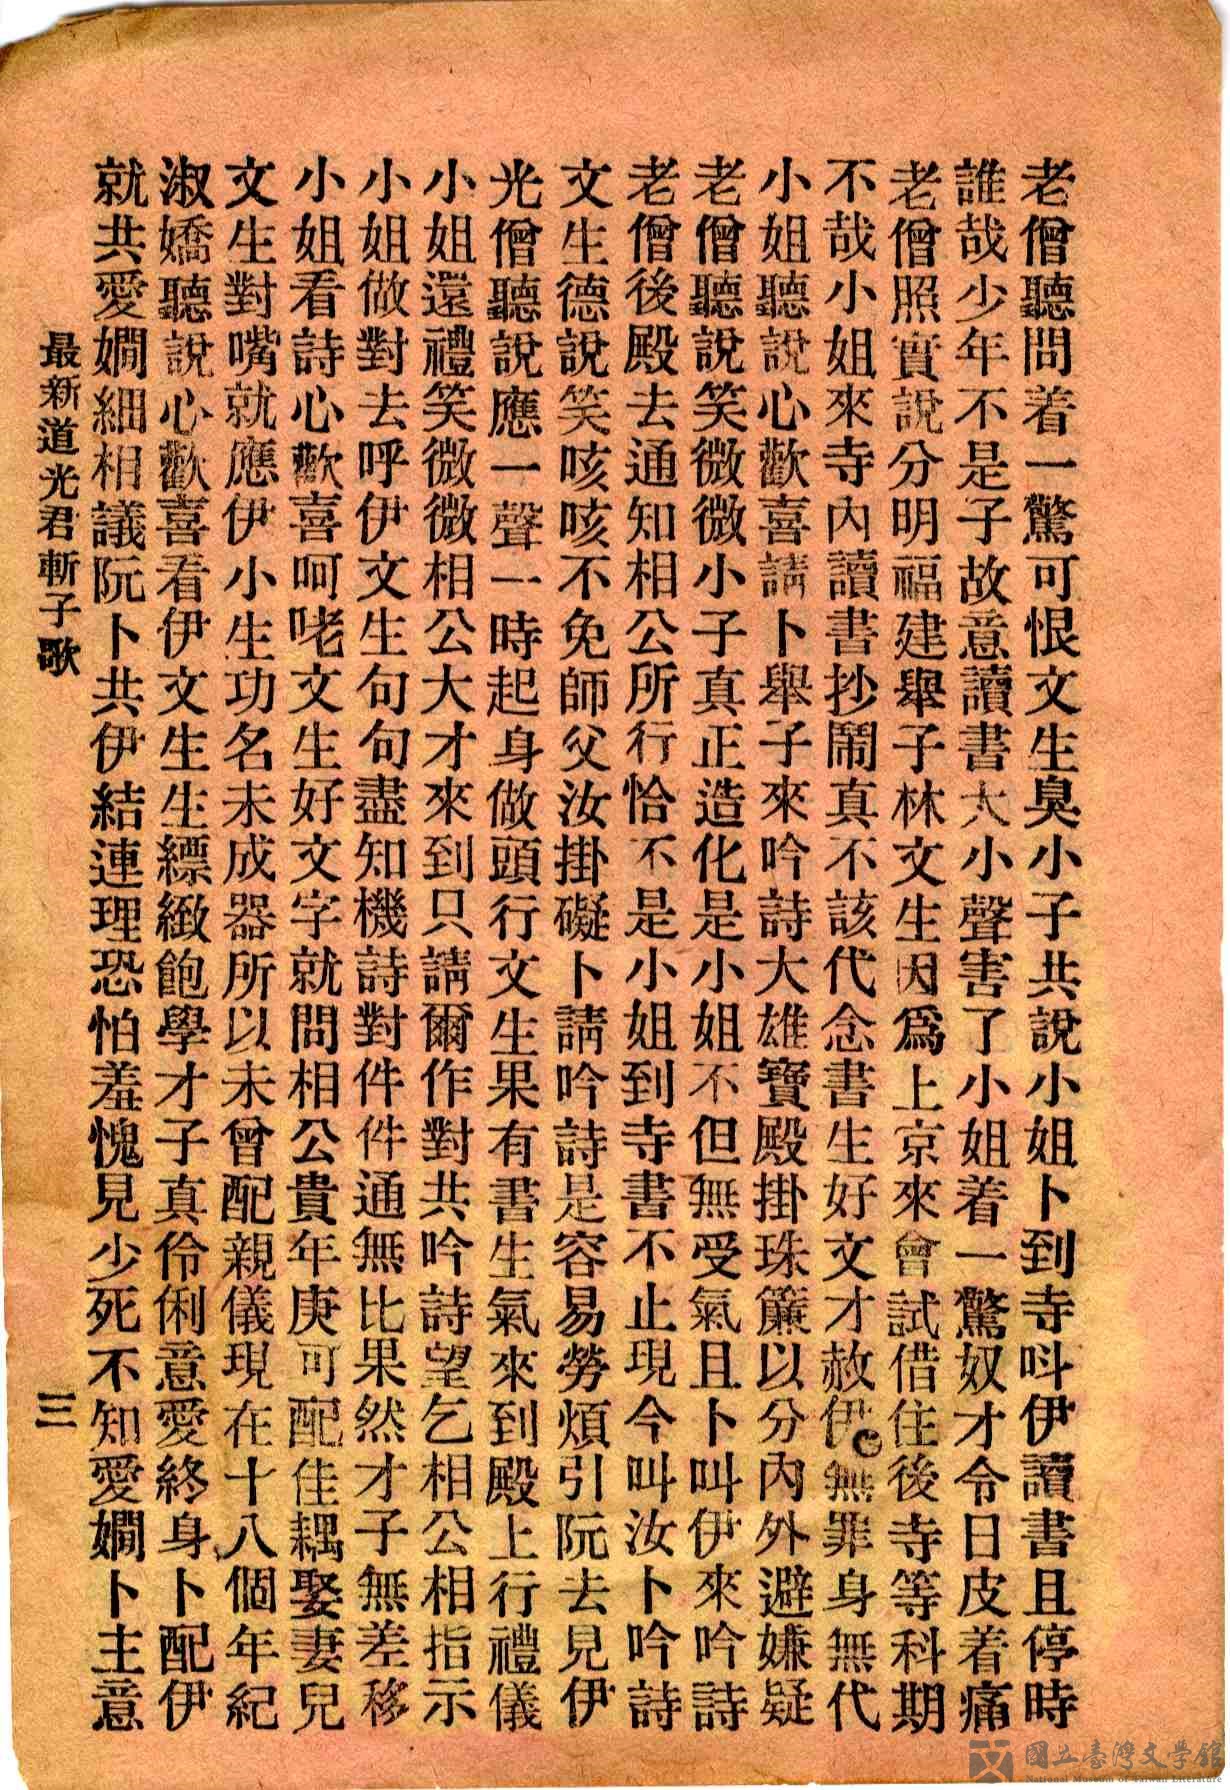 老僧聽問着一驚可恨文生臭小子共說小姐卜到寺呌伊讀書且停時
誰哉少年不是子故意讀書大小聲害了小姐着一驚奴才令日皮着痛
老僧照實說分明福建舉子林文生因爲上京來會試借住後寺等科期
不哉小姐來寺內讀書抄鬧真不該代念書生好文才赦伊無罪身無代
小姐聽說心歡喜請卜舉子來吟詩大雄寶殿掛珠簾以分內外避嫌疑
老僧聽說笑微微小子真正造化是小姐不但無受氣且卜叫伊來吟詩
老僧後殿去通知相公所行恰不是小姐到寺書不止現今叫汝卜吟詩
文生德說笑咳咳不免師父汝掛礙卜請吟詩是容易勞煩引阮去見伊
光僧聽說應一聲一時起身做頭行文生果有書生氣來到殿上行禮儀
小姐還禮笑微微相公大才來到只請爾作對共吟詩望乞相公相指示
小姐做對去呼伊文生句句盡知機詩對件件通無比果然才子無差移
小姐看詩心歡喜呵咾文生好文字就問相公貴年庚可配佳耦娶妻兒
文生對嘴就應伊小生功名未成器所以未曾配親儀現在十八個年紀
淑嬌聽說心歡喜看伊文生生縹緻飽學才子真伶俐意愛終身卜配伊
就共愛嫺細相議阮卜共伊結連理恐怕羞愧見少死不知愛嫺卜主意
最新道光君斬子歌
三
國立臺灣文學館
National Museum of Taiwan Literature